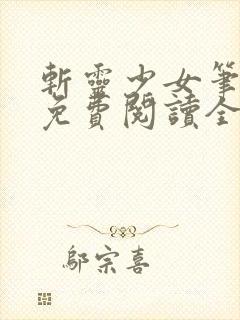 斬靈少女筆
免費閱讀全
鄔宗喜